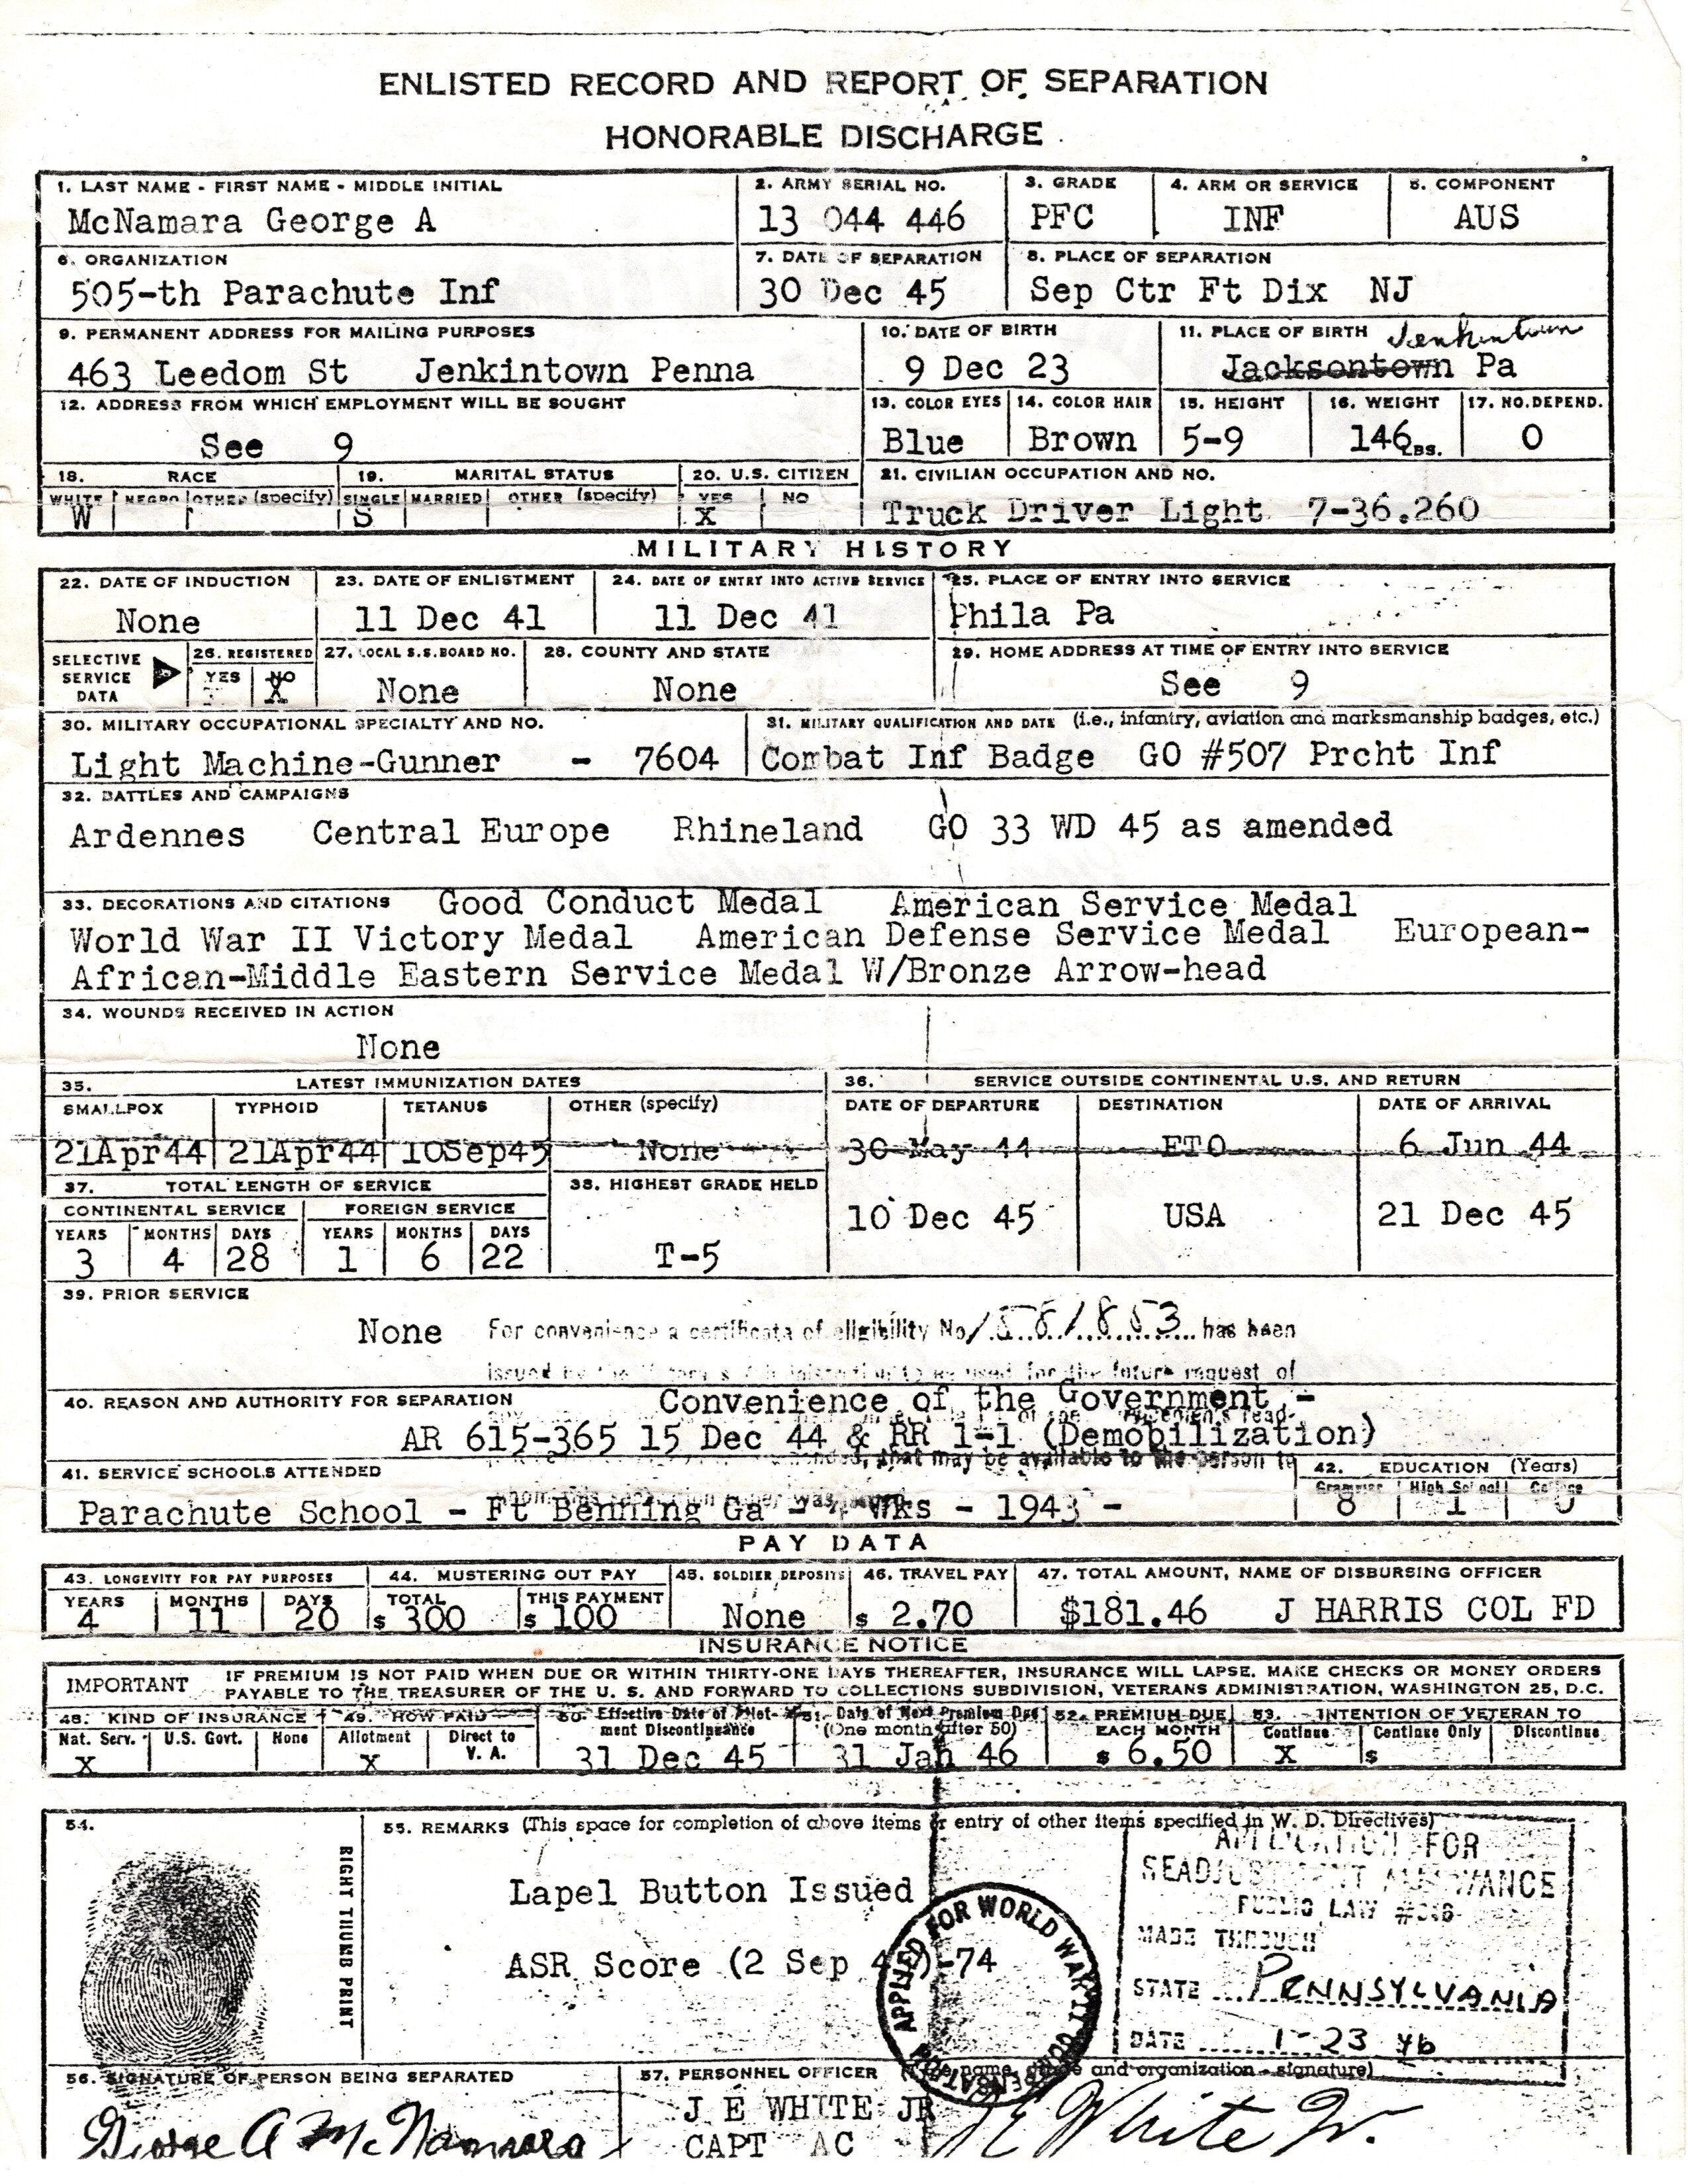 ENLISTED RECORD AND REPORT OF SEPARATION
HONORABLE DISCHARGE
1. LAST NAME - FIRST NAME - MIDDLE INITIAL
McNamara George A
2. ARMY SERIAL NO.
13 044 446
3. GRADE
PFC
4. ARM OR SERVICE
INF
5. COMPONENT
AUS
6. ORGANIZATION
505-th Parachute Inf
7. DATE OF SEPARATION
30 Dec 45
8. PLACE OF SEPARATION
Sep Ctr Ft Dix NJ
9. PERMANENT ADDRESS FOR MAILING PURPOSES
463 Leedom St Jenkintown Penna
10. DATE OF BIRTH
9 Dec 23
11. PLACE OF BIRTH Jenkintown
Jacksontown Pa
12. ADDRESS FROM WHICH EMPLOYMENT WILL BE SOUGHT
See 9
13. COLOR EYES
Blue
14. COLOR HAIR
Brown
15. HEIGHT
5-9
16. WEIGHT
146 LBS.
17. NO. DEPEND.
0
18. RACE
WHITE NEGRO OTHER (specify)
W
19. MARITAL STATUS
SINGLE MARRIED OTHER (specify)
S
20. U.S. CITIZEN
YES NO
X
21. CIVILIAN OCCUPATION AND NO.
Truck Driver Light 7-36.260
MILITARY HISTORY
22. DATE OF INDUCTION
None
23. DATE OF ENLISTMENT
11 Dec 41
24. DATE OF ENTRY INTO ACTIVE SERVICE
11 Dec 41
25. PLACE OF ENTRY INTO SERVICE
Phila Pa
SELECTIVE SERVICE DATA
26. REGISTERED
YES NO
X
27. LOCAL S.S. BOARD NO.
None
28. COUNTY AND STATE
None
29. HOME ADDRESS AT TIME OF ENTRY INTO SERVICE
See 9
30. MILITARY OCCUPATIONAL SPECIALTY AND NO.
Light Machine-Gunner - 7604
31. MILITARY QUALIFICATION AND DATE (i.e., infantry, aviation and marksmanship badges, etc.)
Combat Inf Badge GO #507 Prcht Inf
32. BATTLES AND CAMPAIGNS
Ardennes Central Europe Rhineland GO 33 WD 45 as amended
33. DECORATIONS AND CITATIONS Good Conduct Medal American Service Medal
World War II Victory Medal American Defense Service Medal European-
African-Middle Eastern Service Medal W/Bronze Arrow-head
34. WOUNDS RECEIVED IN ACTION
None
35. LATEST IMMUNIZATION DATES
SMALLPOX TYPHOID TETANUS OTHER (specify)
21Apr44 21Apr44 10Sep45 None
36. SERVICE OUTSIDE CONTINENTAL U.S. AND RETURN
DATE OF DEPARTURE DESTINATION DATE OF ARRIVAL
30 May 44 ETO 6 Jun 44
10 Dec 45 USA 21 Dec 45
37. TOTAL LENGTH OF SERVICE
CONTINENTAL SERVICE FOREIGN SERVICE
YEARS MONTHS DAYS YEARS MONTHS DAYS
3 4 28 1 6 22
38. HIGHEST GRADE HELD
T-5
39. PRIOR SERVICE
None For convenience a certificate of eligibility No 1581853 has been
issued by the to be used for the future request of
40. REASON AND AUTHORITY FOR SEPARATION Convenience of the Government -
AR 615-365 15 Dec 44 & RR 1-1 (Demobilization)
that may be available to the person to
41. SERVICE SCHOOLS ATTENDED
Parachute School - Ft Benning Ga - 4 Wks - 1943 -
42. EDUCATION (Years)
Grammar High School College
8 1 0
PAY DATA
43. LONGEVITY FOR PAY PURPOSES
YEARS MONTHS DAYS
4 11 20
44. MUSTERING OUT PAY
TOTAL THIS PAYMENT
$ 300 $ 100
45. SOLDIER DEPOSITS
None
46. TRAVEL PAY
$ 2.70
47. TOTAL AMOUNT, NAME OF DISBURSING OFFICER
$181.46 J HARRIS COL FD
INSURANCE NOTICE
IMPORTANT IF PREMIUM IS NOT PAID WHEN DUE OR WITHIN THIRTY-ONE DAYS THEREAFTER, INSURANCE WILL LAPSE. MAKE CHECKS OR MONEY ORDERS
PAYABLE TO THE TREASURER OF THE U. S. AND FORWARD TO COLLECTIONS SUBDIVISION, VETERANS ADMINISTRATION, WASHINGTON 25, D.C.
48. KIND OF INSURANCE
Nat. Serv. U.S. Govt. None
X
49. HOW PAID
Allotment Direct to V. A.
X
50. Effective Date of Allot-
ment Discontinuance
31 Dec 45
51. Date of Next Premium Due
(One month after 50)
31 Jan 46
52. PREMIUM DUE
EACH MONTH
$ 6.50
53. INTENTION OF VETERAN TO
Continue Continue Only Discontinue
X $
54.
RIGHT THUMB PRINT
55. REMARKS (This space for completion of above items or entry of other items specified in W. D. Directives)
Lapel Button Issued
ASR Score (2 Sep 45)-74
APPLIED FOR WORLD WAR II COMPENSATION
APPLICATION FOR
READJUSTMENT ALLOWANCE
PUBLIC LAW #346
MADE THROUGH
STATE PENNSYLVANIA
DATE 1-23 46
56. SIGNATURE OF PERSON BEING SEPARATED
George A McNamara
57. PERSONNEL OFFICER (Type name, grade and organization - signature)
J E WHITE JR
CAPT AC
J E White Jr.